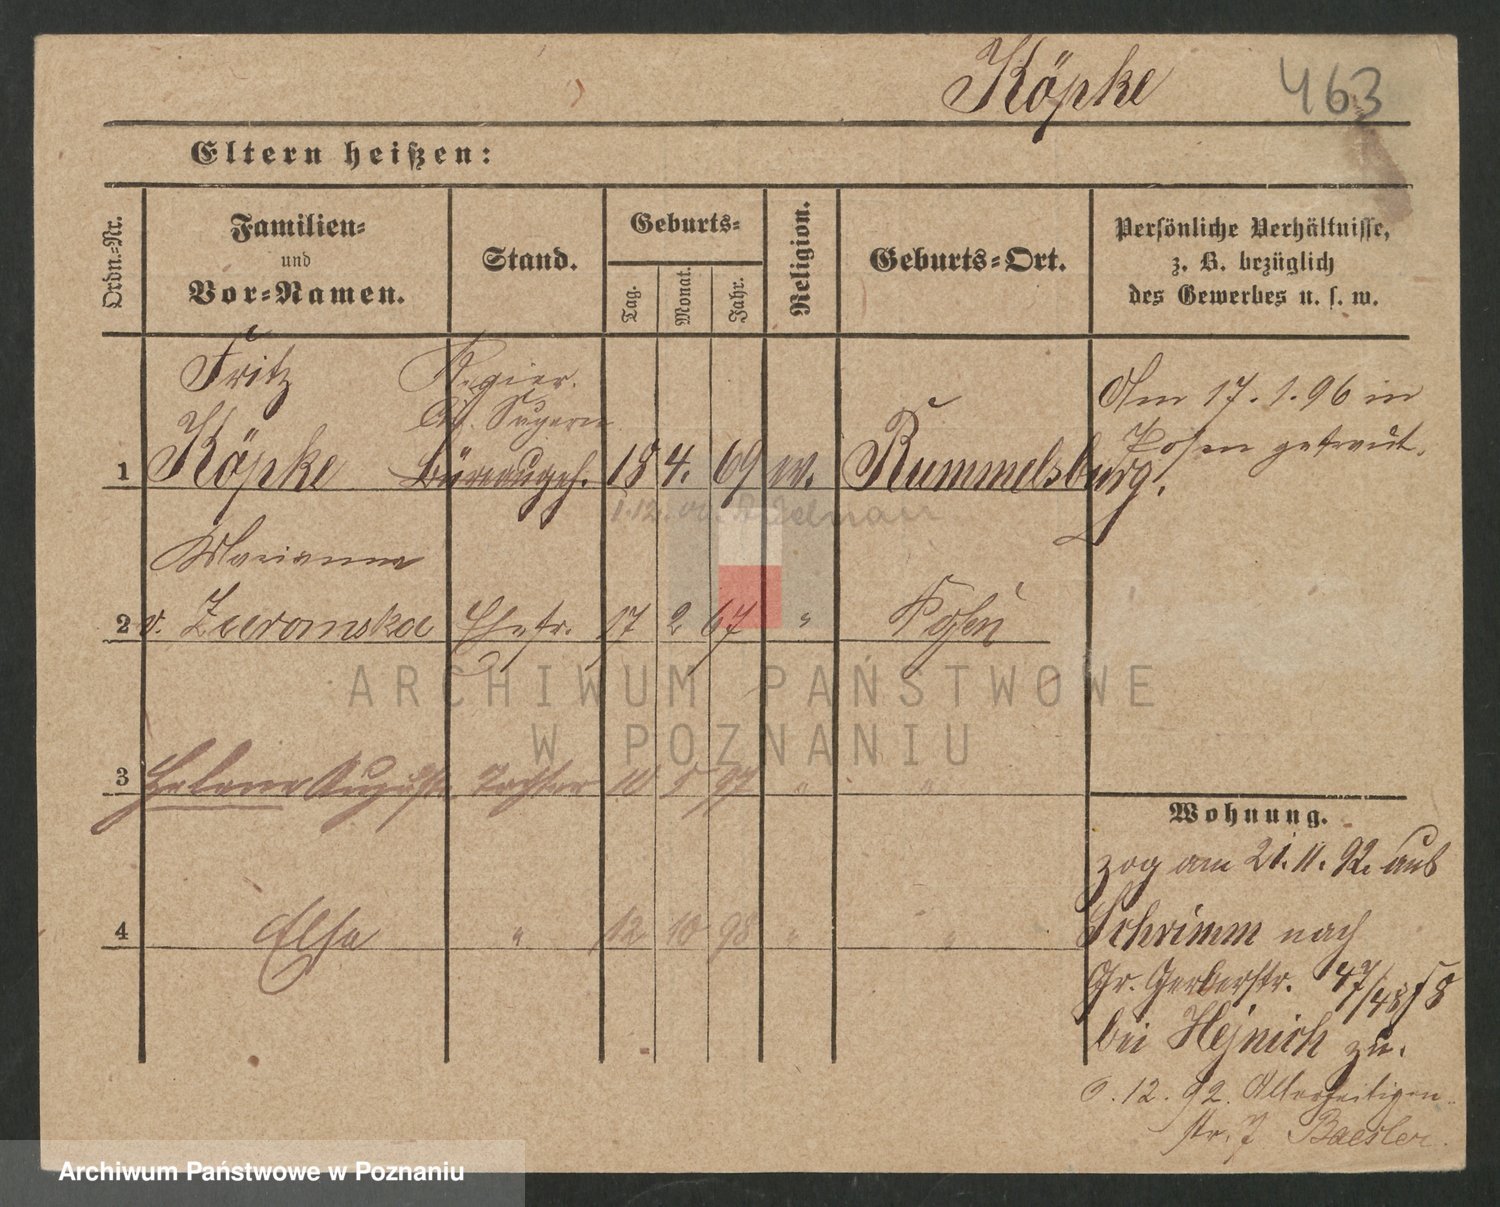 Köpke 463
Eltern heißen:
Ordn.-Nr.
Familien-
und
Vor-Namen.
Stand.
Geburts-
Tag.
Monat.
Jahr.
Religion.
Geburts-Ort.
Persönliche Verhältnisse,
z. B. bezüglich
des Gewerbes u. s. w.
Fritz Regier.
Supern
1 Köpke Büreaugeh. 18 4. 69 ev. Rummelsburg.
Am 17.1.96 in
Posen getraut.
Marianna
2 v. Zuromska Ehefr. 17 2 67 " Posen
3 Helene Auguste Tochter 10 5 97 " "
4 Elsa " 12 10 98 " "
Wohnung.
zog am 21.11.92. aus
Schrimm nach
Gr. Gerberstr. 47/48
bei Hejnich zu.
.12.92. Allerheiligen-
str. 7 Baesler.
ARCHIWUM PAŃSTWOWE
W POZNANIU
Archiwum Państwowe w Poznaniu